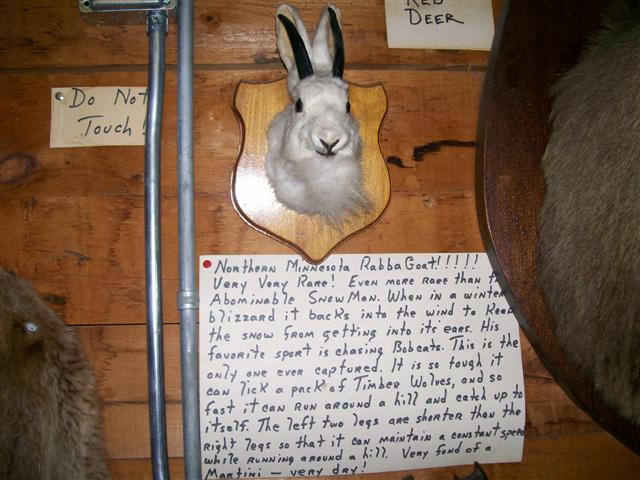 RED
DEER
Do Not
Touch!
• Northern Minnesota RabbaGoat!!!!!
Very Very Rare! Even more rare than
Abominable SnowMan. When in a winter
blizzard it backs into the wind to keep
the snow from getting into its ears. His
favorite sport is chasing Bobcats. This is the
only one ever captured. It is so tough it
can lick a pack of Timber Wolves, and so
fast it can run around a hill and catch up to
itself. The left two legs are shorter than the
right legs so that it can maintain a constant speed
while running around a hill. Very fond of a
Martini – very dry!